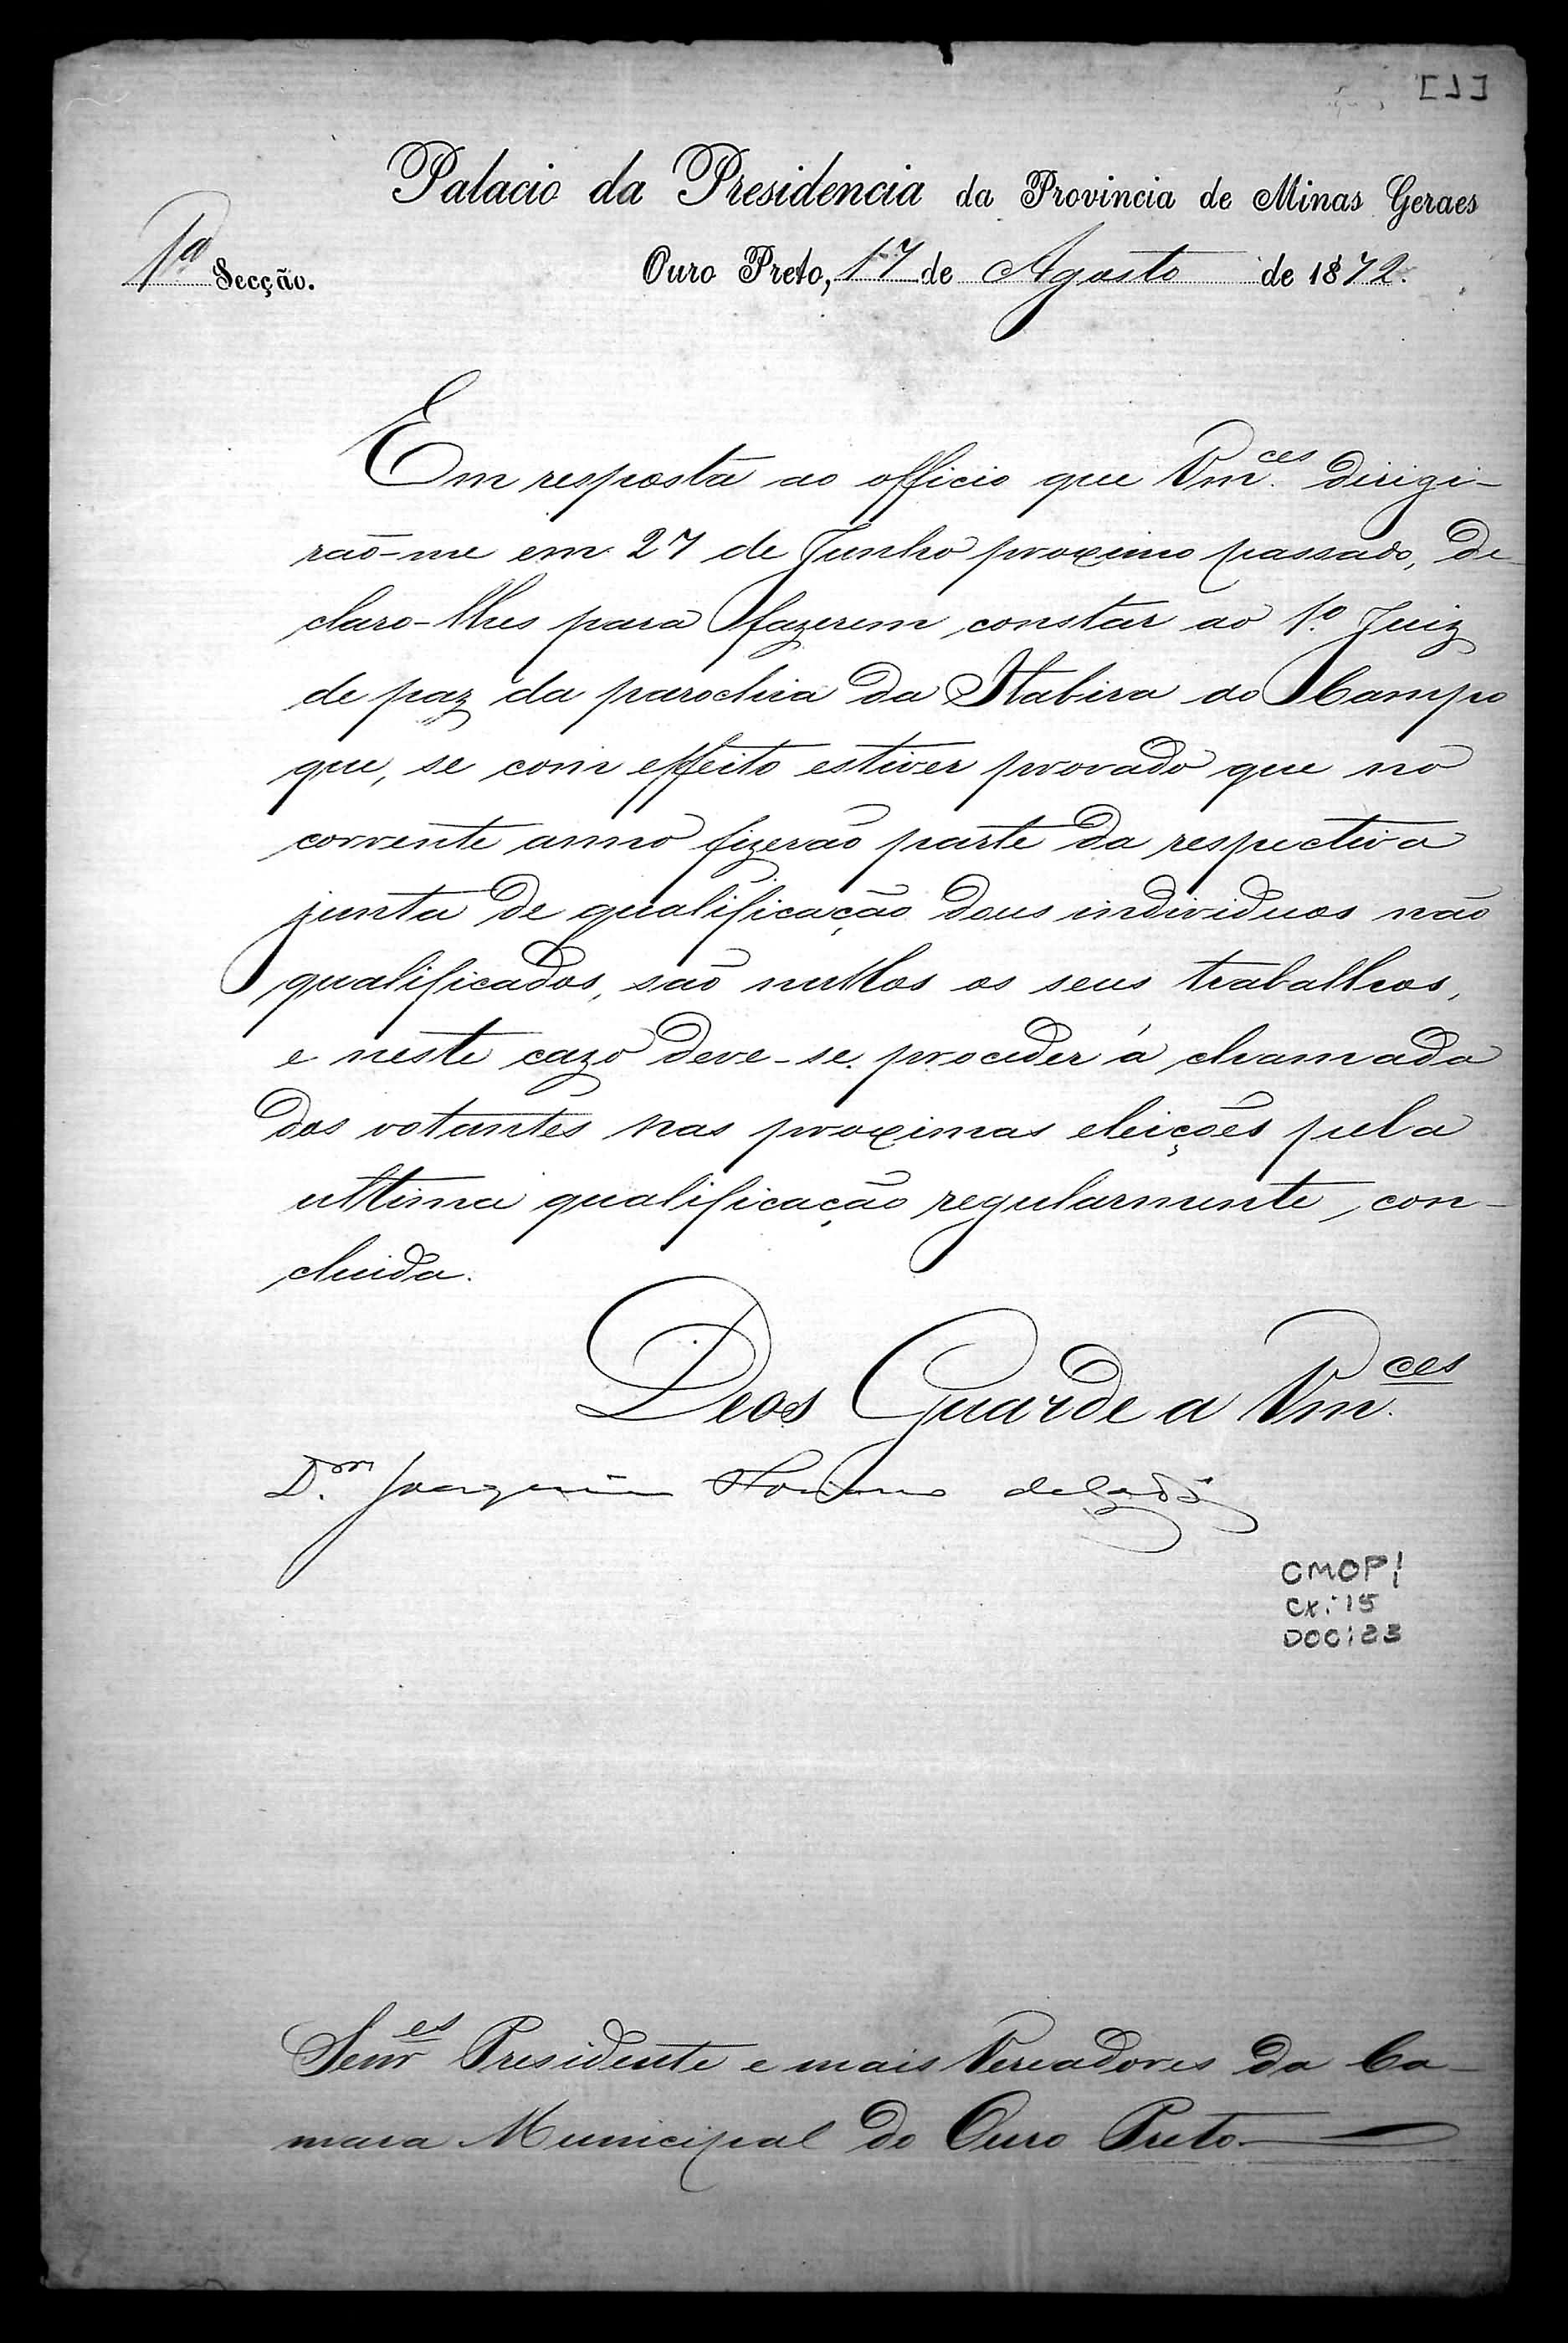 [1]
Palacio da Presidencia da Provincia de Minas Geraes
1ª Secção.
Ouro Preto, 17 de Agosto de 1872.
Em resposta ao officio que Vm.ces dirigi-
rão-me em 27 de Junho proximo passado, de
claro-lhes para fazerem constar ao 1.º Juiz
de paz da parochia da Itabira do Campo
que, se com effeito estiver provado que no
corrente anno fizerão parte da respectiva
junta de qualificação dous individuos não
qualificados, são nullos os seus trabalhos,
e neste cazo deve-se proceder á chamada
dos votantes nas proximas eleições pela
ultima qualificação regularmente, con-
cluida.
Deos Guarde a Vm.ces
Joaquim
CMOP!
CX: 15
DOC: 23
Senr.es Presidente e mais Vereadores da Ca-
mara Municipal do Ouro Preto.